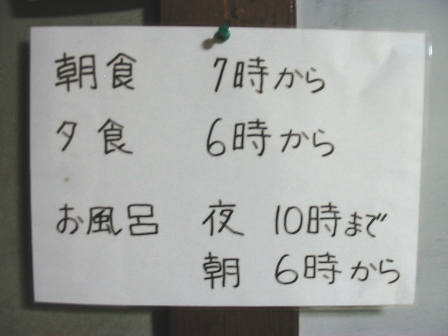 朝食 7時から
夕食 6時から
お風呂 夜 10時まで
朝 6時から